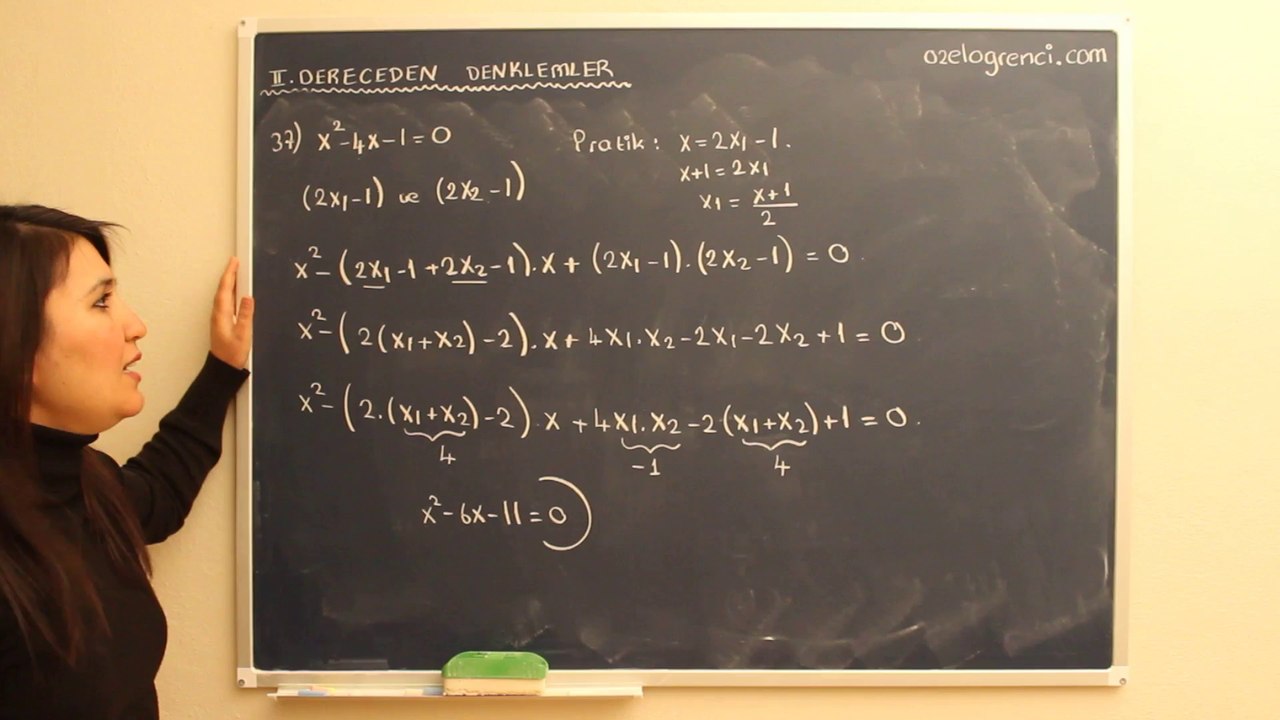 II. DERECEDEN DENKLEMLER
ozelogrenci.com
37) x²-4x-1=0
(2x₁-1) ve (2x₂-1)
Pratik: x=2x₁-1.
x+1=2x₁
x₁ = (x+1)/2
x²-(2x₁-1+2x₂-1).x+(2x₁-1).(2x₂-1)=0
x²-(2(x₁+x₂)-2).x+4x₁.x₂-2x₁-2x₂+1=0
x²-(2.(x₁+x₂)-2).x+4x₁.x₂-2(x₁+x₂)+1=0.
4 -1 4
x²-6x-11=0